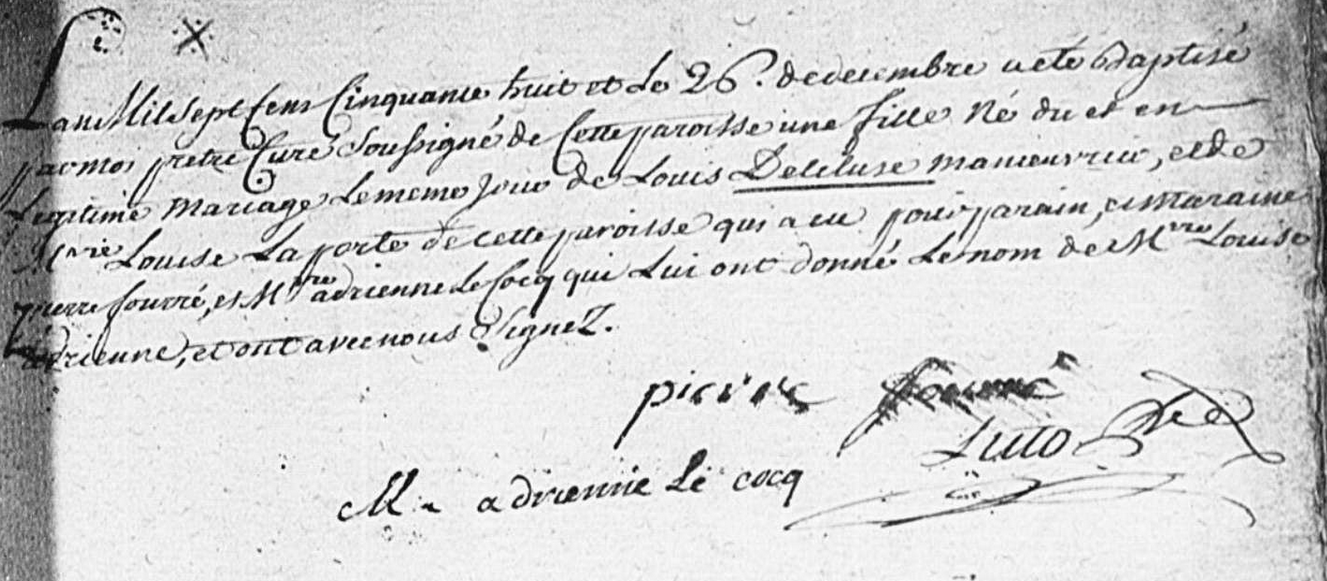 Lan Mil Sept Cens Cinquante huit et Le 26e. de decembre a eté Baptisé
par moi pretre Curé Soussigné de Cette paroisse une fille Né du et en
Legitime Mariage Le meme Jour de Louis Delcluse manouvrier, et de
Mrie Louise La porte de cette paroisse qui a eu pour parain, et Maraine
pierre fourré, et Mrie adrienne Le Cocq qui Lui ont donné Le nom de Mrie Louise
adrienne, et ont avec nous Signez.
pierre fourré
Luto
M adrienne Le cocq